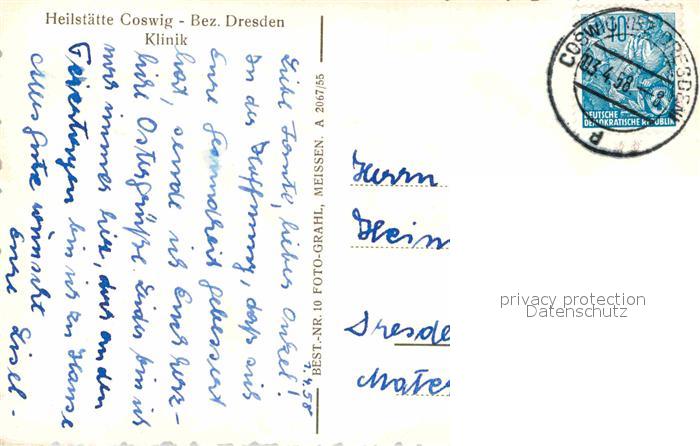 Heilstätte Coswig - Bez. Dresden
Klinik
1.4.58
Liebe Tante, lieber Onkel!
In der Hoffnung, daß sich
Eure Gesundheit gebessert
hat, sende ich Euch herz-
liche Ostergrüße. Leider bin ich
nur immer hier, doch an den
Feiertagen bin ich zu Hause
Alles Gute wünscht
Eure Liesel.
BEST.-NR. 10 FOTO-GRAHL, MEISSEN. A 2067/55
COSWIG (BZ DRESDEN)
03.4.58
10
DEUTSCHE
DEMOKRATISCHE REPUBLIK
Herrn
Hein
Dresde
privacy protection
Datenschutz